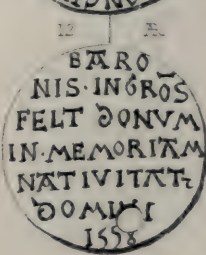 BARO
NIS·INGROS
FELT DONVM
IN·MEMORIAM
NATIVITATꝫ
DOMINI
1558